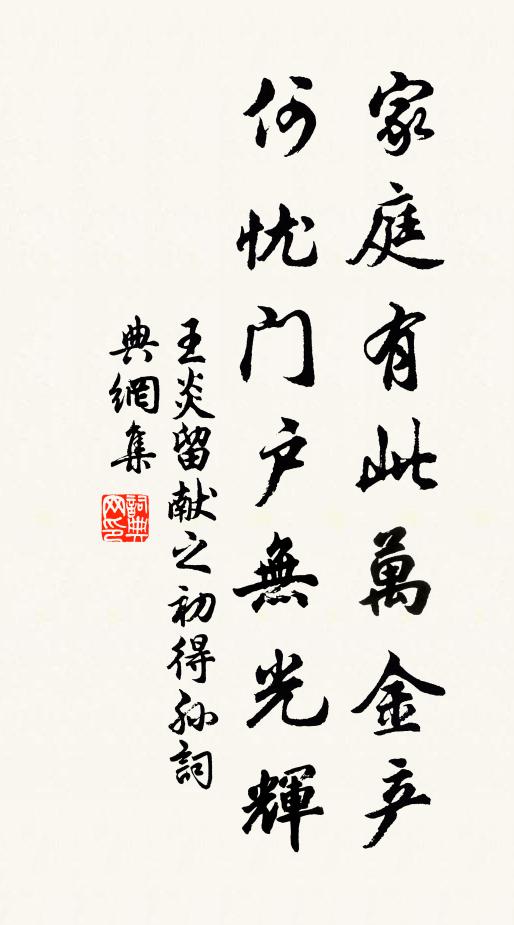 家庭有此萬金产
何忧门户無光輝
王炎留献之初得孙詞
典網集
詞典
网印